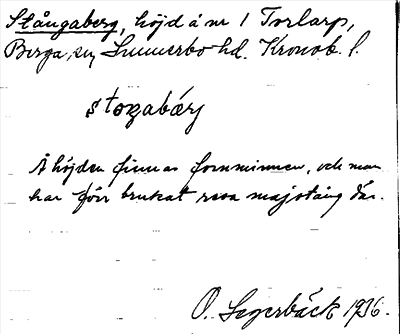 Stångaberg, höjd å nr 1 Torlarp,
Berga sn, Sunnerbo hd. Kronob. l.
stogabærj
Å höjden finnas fornminnen, och man
har förr brukat resa majstång där.
O. Segerbäck 1936.